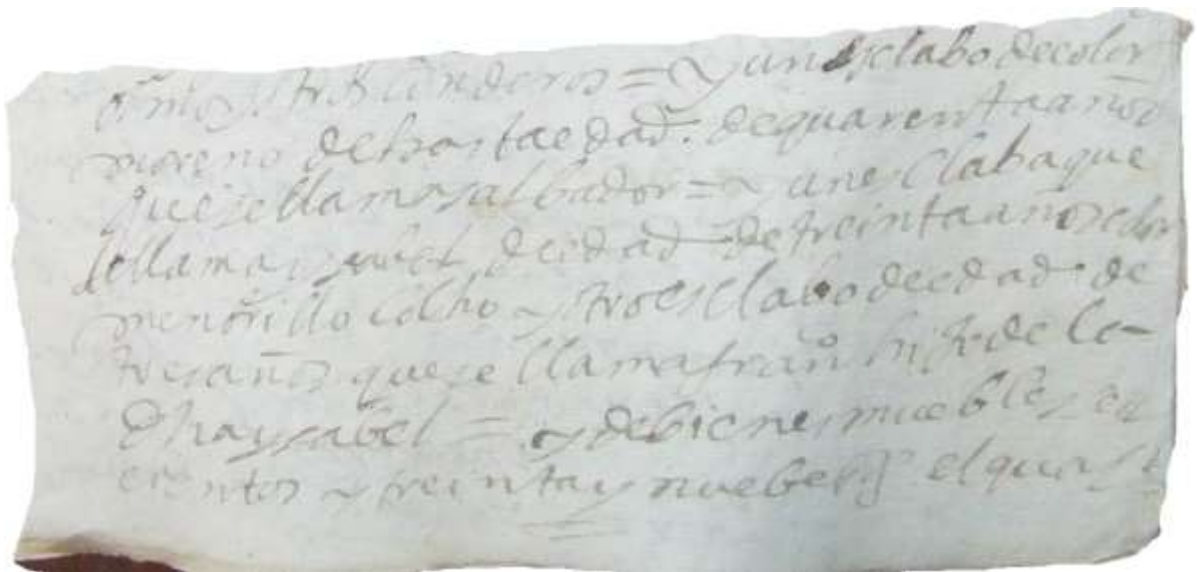 y un esclabo de color
moreno de hasta edad. de quarenta años
que se llama salbador = y un esclaba que
se llama ysabel de edad de treinta años color
y tro esclabo de edad de
tres años que se llama franco hijo de la
dha ysabel = y de bienes muebles
cientos y treinta y nuebe el qual